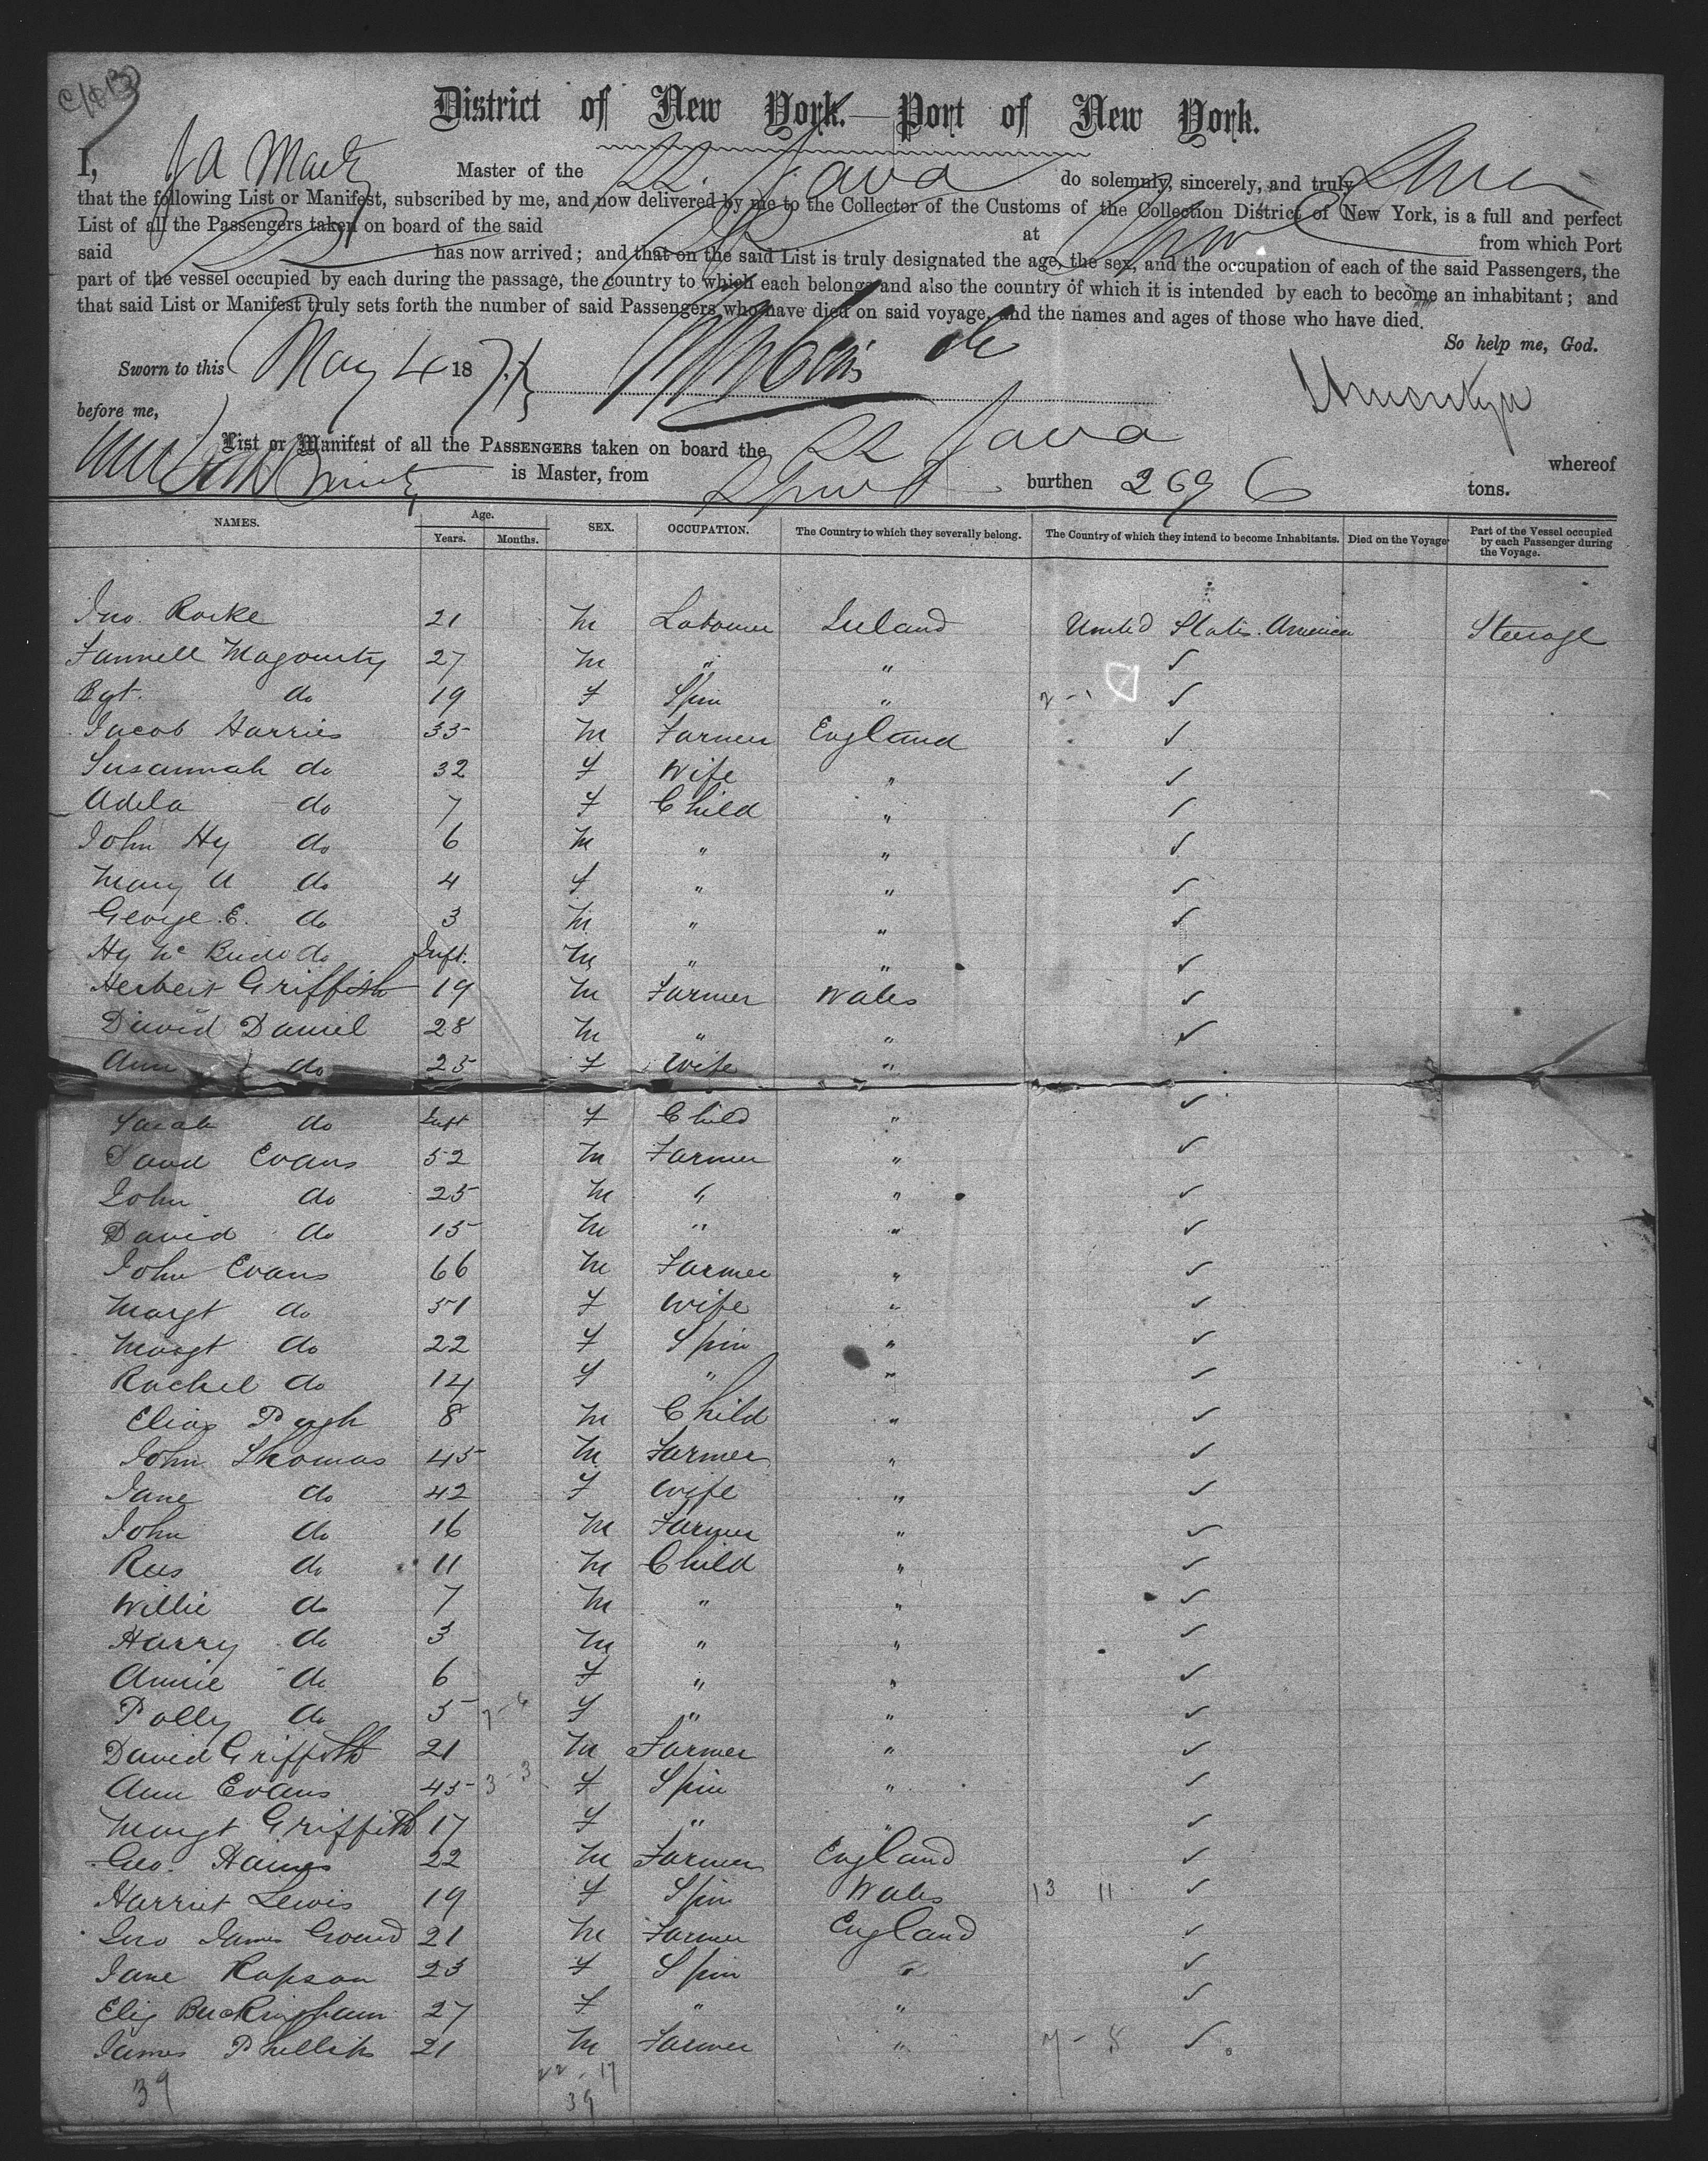 District of New York.—Port of New York.
I, Master of the SS. Java do solemnly, sincerely, and truly
that the following List or Manifest, subscribed by me, and now delivered by me to the Collector of the Customs of the Collection District of New York, is a full and perfect
List of all the Passengers taken on board of the said at from which Port
said has now arrived; and that on the said List is truly designated the age, the sex, and the occupation of each of the said Passengers, the
part of the vessel occupied by each during the passage, the country to which each belongs and also the country of which it is intended by each to become an inhabitant; and
that said List or Manifest truly sets forth the number of said Passengers who have died on said voyage, and the names and ages of those who have died.
So help me, God.
Sworn to this May 4 187
before me,
List or Manifest of all the PASSENGERS taken on board the SS Java whereof
is Master, from Lpool burthen 2696 tons.
NAMES. Age. Years. Months. SEX. OCCUPATION. The Country to which they severally belong. The Country of which they intend to become Inhabitants. Died on the Voyage Part of the Vessel occupied by each Passenger during the Voyage.
Jno. Rorke 21 M Labourer Ireland United States America Steerage
Magourty 27 M " " ✓
Bgt. do 19 F Spin " ✓
Jacob Harries 33 M Farmer England ✓
Susannah do 32 F Wife " ✓
Adela do 7 F Child " ✓
John Hy do 6 M " " ✓
Mary A do 4 F " " ✓
George E. do 3 M " " ✓
Hy Mc do Inft. M " " ✓
Herbert Griffith 19 M Farmer Wales ✓
David Daniel 28 M " " ✓
Ann do 25 F Wife "
Sarah do Inft F Child " ✓
David Evans 52 M Farmer " ✓
John do 25 M " " ✓
David do 15 M " " ✓
John Evans 66 M Farmer " ✓
Margt do 51 F Wife " ✓
Margt do 22 F Spin " ✓
Rachel do 14 F " " ✓
Elias Pugh 8 M Child " ✓
John Thomas 45 M Farmer " ✓
Jane do 42 F Wife " ✓
John do 16 M Farmer " ✓
Rees do 11 M Child " ✓
Willie do 7 M " " ✓
Harry do 3 M " " ✓
Annie do 6 F " " ✓
Polly do 5 F " " ✓
David Griffith 21 M Farmer " ✓
Ann Evans 45 3-3 F Spin " ✓
Margt Griffith 17 F " " ✓
Geo. Haines 22 M Farmer England ✓
Harriet Lewis 19 F Spin Wales 13 11 ✓
Jno James Ground 21 M Farmer England ✓
Jane Rapson 23 F Spin " ✓
Eliz Buckingham 27 F " " ✓
James Phillips 21 M Farmer " ✓
39 22-17
39